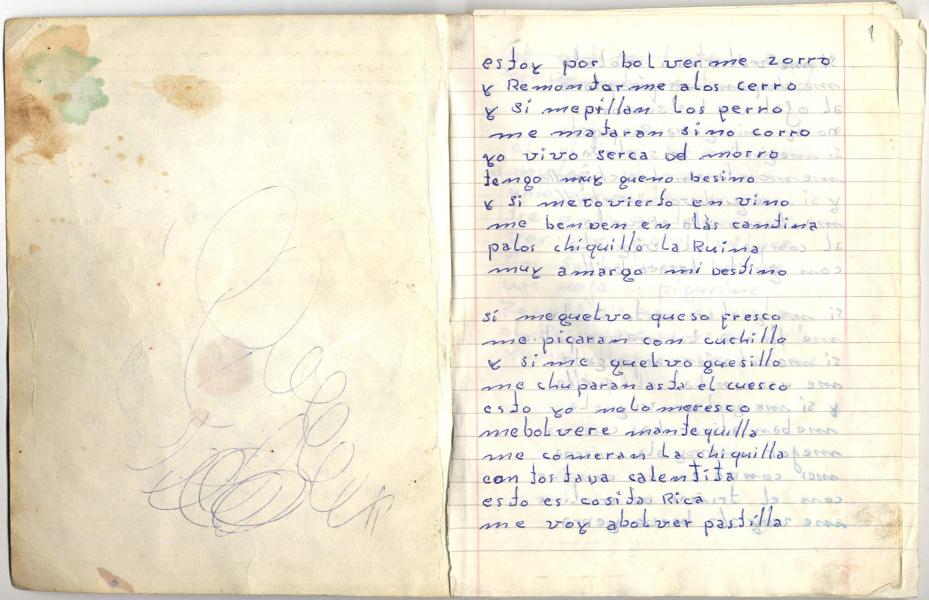 1
estoy por bolverme zorro
y Remontarme alos cerro
y si mepillan los perro
me mataran sino corro
yo vivo serca del morro
tengo muy gueno besino
y si meconvierto en vino
me benven en las cantina
palos chiquillo la Ruina
muy amargo mi destino
si meguelvo queso fresco
me picaran con cuchillo
y si me guelvo guesillo
me chuparan asta el cuesco
esto yo nolo meresco
mebolvere mantequilla
me comeran la chiquilla
con tostava calentita
esto es cosita Rica
me voy abolver pastilla